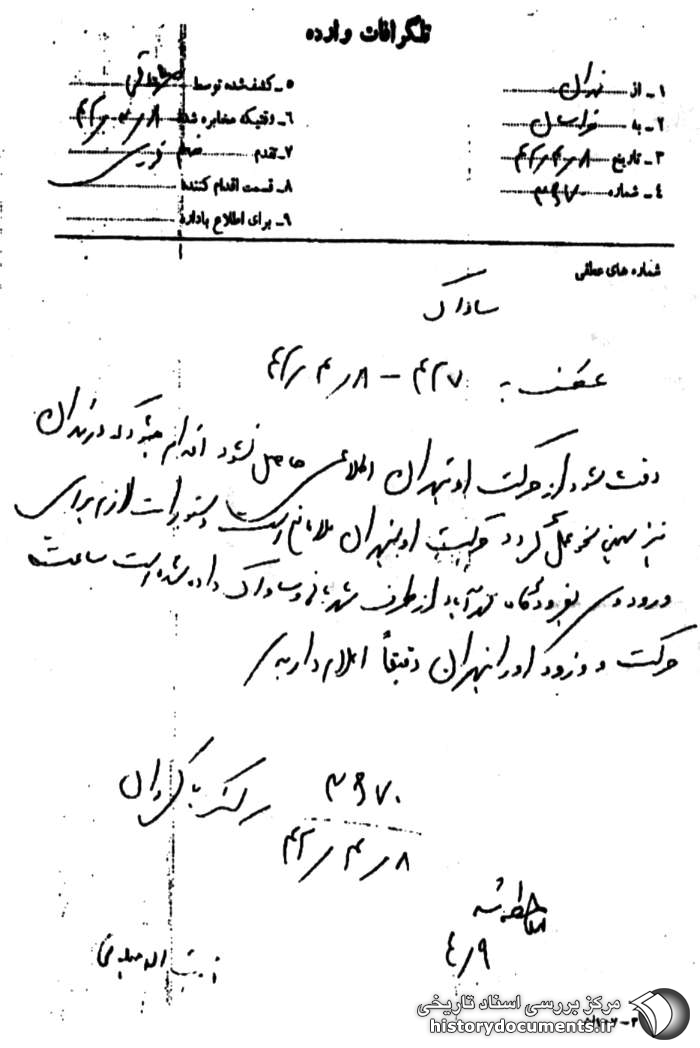 تلگرافات وارده
۱ـ از تهران
۲ـ به خراسان
۳ـ تاریخ ۸ر۴ر۴۲
۴ـ شماره ۳۹۷۰
۵ـ کشف شده توسط
۶ـ دقیقه مخابره شده ۸ر۴ر۴۲
۷ـ تقدم خیلی فوری
۸ـ قسمت اقدام کننده
۹ـ برای اطلاع باداره
شماره های عطفی
ساواک
عطف به ۴۲۷ – ۸ر۴ر۴۲
دقت شود از حرکت او بتهران اطلاعی حاصل نشود اقدام میشود که در تهران
نیز بهمین نحو عمل گردد حرکت او بتهران بلامانع است دستورات لازم برای
ورود وی بفرودگاه مهرآباد از طرف شهربانی و ساواک داده شده است ساعت
حرکت و ورود او را بتهران دقیقاً اعلام دارید
۳۹۷۰
۸ر۴ر۴۲
سرلشکر پاکروان
ملاحظه شد
۴ر۹
مرکز بررسی اسناد تاریخی
historydocuments.ir